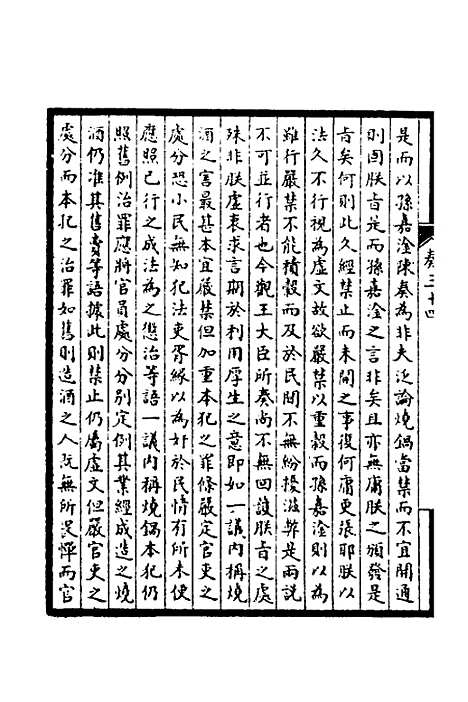 是而以孫嘉淦陳奏為非夫泛論燒鍋當禁而不宜開通
則固朕旨是而孫嘉淦之言非矣且亦無庸朕之頒發是
旨矣何則此久經禁止而未開之事復何庸更張耶朕以
法久不行視為虛文故欲嚴禁以重穀而孫嘉淦則以為
雖行嚴禁不能積穀而及於民間不無紛擾滋弊是兩說
不可並行者也今觀王大臣所奏尚不無回護朕旨之處
殊非朕虛衷求言期於利用厚生之意即如一議內稱燒
酒之害最甚本宜嚴禁但加重本犯之罪條嚴定官吏之
處分恐小民無知犯法吏胥緣以為奸於民情有所未便
應照已行之成法為之懲治等語一議內稱燒鍋本犯仍
照舊例治罪應將官員處分分別定例其業經成造之燒
酒仍准其售賣等語據此則禁止仍屬虛文但嚴官吏之
處分而本犯之治罪如舊則造酒之人既無所畏憚而官
奏三十四